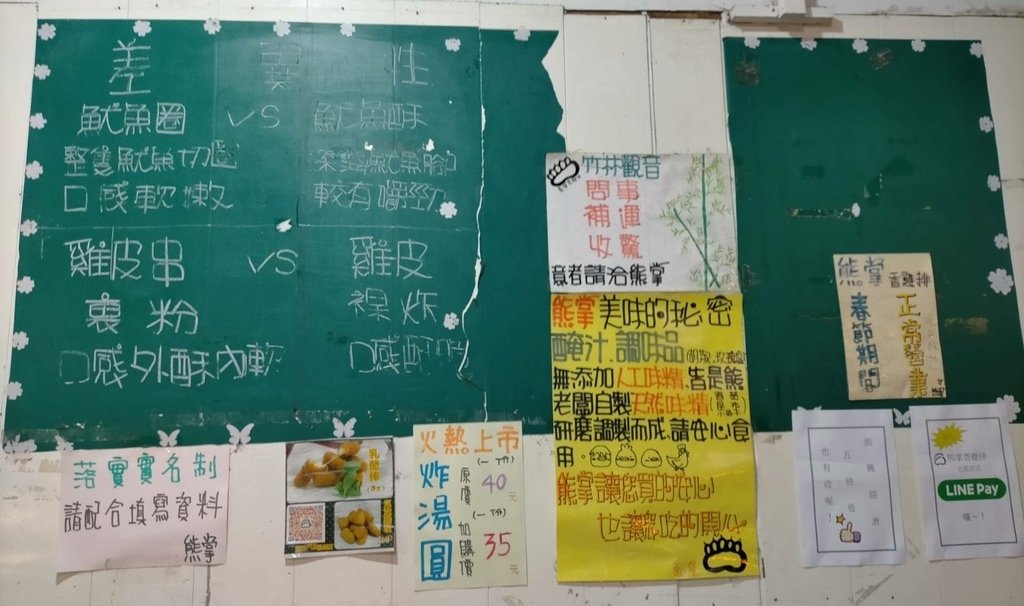 差異性
魷魚圈 VS 魷魚酥
整隻魷魚切圈
口感軟嫩 較有嚼勁
雞皮串 VS 雞皮
裹粉 裸炸
口感外酥內軟 口感酥脆
竹林觀音
問事
補運
收驚
意者請洽熊掌
熊掌美味的秘密
醃汁、調味品
無添加人工味精,皆是熊
老闆自製天然味精
研磨調製而成,請安心食
用。
熊掌讓您買的安心
也讓您吃的開心
熊掌香雞排
春節期間
正常營業
落實實名制
請配合填寫資料
熊掌
乳酪棒
火熱上市
炸湯圓
(一份)
原價40元
(一份)
加購價35元
振興
五倍券
也有收喔!
熊掌香雞排
LINE Pay
喔~!